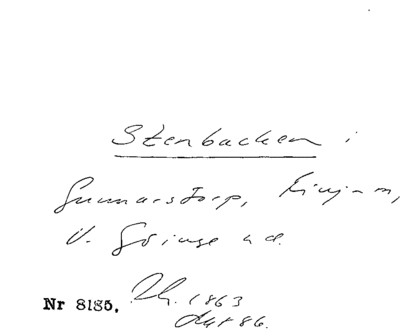 Stenbacken i
Gunnarstorp, Finja m,
V. Göinge hd.
Nr 8185. Th. 1863